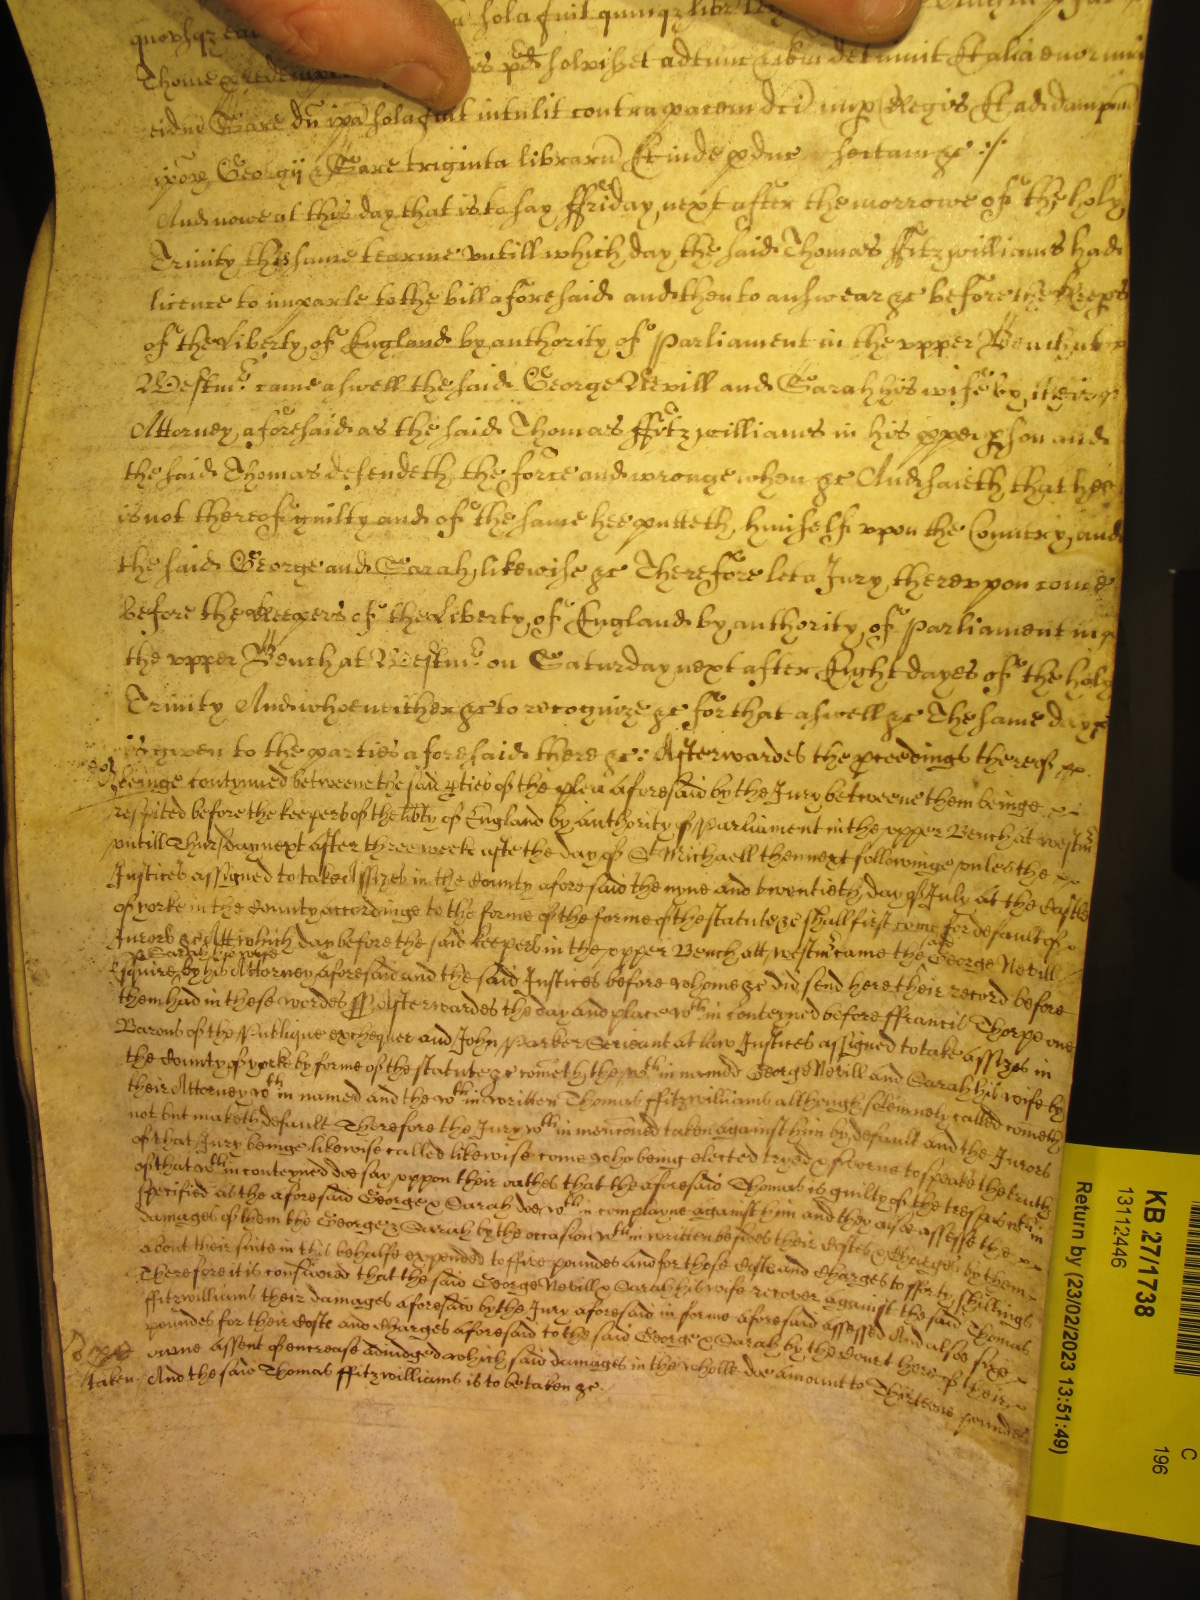 sola fuit quinqz libr
quousqz
Thome solvisset adtunc detinuit Et alia enormia
eidm Sare dū ipa sola fuit intulit contra pacem dci nup Regis Et ad dampnū
ipōr Georgij & Sare triginta librarū Et inde pduc sectam &c
And nowe at this day that is to say ffriday next after the morrowe of the holy
Trinity this same tearme untill which day the said Thomas ffitzwilliams had
licence to imparle to the bill aforesaid and then to answear &c before the Keeps
of the Liberty of England by authority of Parliament in the upper Bench at
Westmr came aswell the said George Nevill and Sarah his wife by their
Attorney aforesaid as the said Thomas ffitzwilliams in his pper pson and
the said Thomas defendeth the force and wronge when &c And saieth that hee
is not thereof guilty and of the same hee putteth himselfe upon the Countrey and
the said George and Sarah likewise &c Therefore let a Jury thereuppon come
before the Keepers of the Liberty of England by authority of Parliament in
the upper Bench at Westmr on Saturday next after Eight dayes of the holy
Trinity And who neither &c to recognize &c for that aswell &c The same day
is given to the parties aforesaid there &c: Afterwardes the pceedings thereof
beinge contynued betweene the said pties of the plea aforesaid by the Jury betweene them beinge
respited before the keepers of the libty of England by authority of Parliament in the upper Bench at westmr
untill Thursday next after three weeks afte the day of St Michaell then next followinge unles the
Justices assigned to take Assizes in the County aforesaid the nyne and twentieth day of July at the Castle
of yorke in the County accordinge to the forme of the forme of the statute &c shall first come for default of
Jurors &c Att which day before the said keepers in the upper Bench att westmr came the said George Nevill
& Sarah his wife
Esquire by his Attorney aforesaid and the said Justices before whome &c did send here their record before
them had in these wordes ss Afterwardes the day and place wthin conteyned before ffrancis Thorpe one
Barons of the Publique exchequer and John Parker Serieant at law Justices assigned to take assizes in
the County of yorke by forme of the statute &c cometh the wthin named George Nevill and Sarah his wife by
their Attorney wthin named and the wthin written Thomas ffitzwilliams although solemnely called cometh
not but maketh default Therefore the Jury wthin menconed taken against him by default and the Jurors
of that Jury beinge likewise called likewise come who being elected tryed & sworne to speake the truth
of that wthin conteyned doe say uppon their oathes that the aforesaid Thomas is guilty of the trespas wthin
specified as the aforesaid George & Sarah doe wthin complayne against him and they alsoe assesse the
damages of them the George & Sarah by the occasion wthin written besides their Costes & Charges by them
about their suite in this behalfe expended to ffive poundes and for those Costs and Charges to fforty shillings
Therefore it is considered that the said George Nevill & Sarah his wife recover against the said Thomas
ffitzwilliams their damages aforesaid by the Jury aforesaid in forme aforesaid assessed And alsoe sixe
poundes for their Costs and Charges aforesaid to the said George & Sarah by the Court here of their
owne assent of encrease adiudged which said damages in the wholle doe amount to Thirteene poundes
taken And the said Thomas ffitzwilliams is to be taken &c
KB 27/1738
13112446
Return by (23/02/2023 13:51:49)
C
196